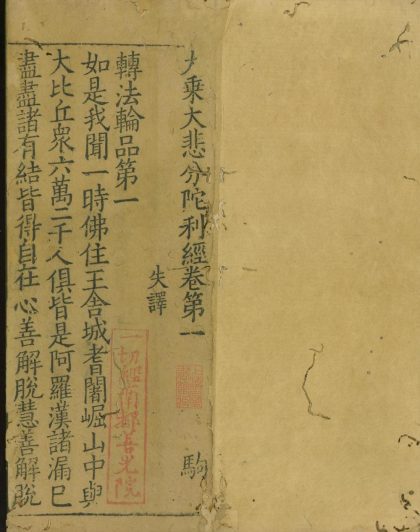 大乘大悲分陀利經卷第一
失譯
駒
轉法輪品第一
如是我聞一時佛住王舍城耆闍崛山中與
大比丘衆六萬二千人俱皆是阿羅漢諸漏已
盡盡諸有結皆得自在心善解脫慧善解脫